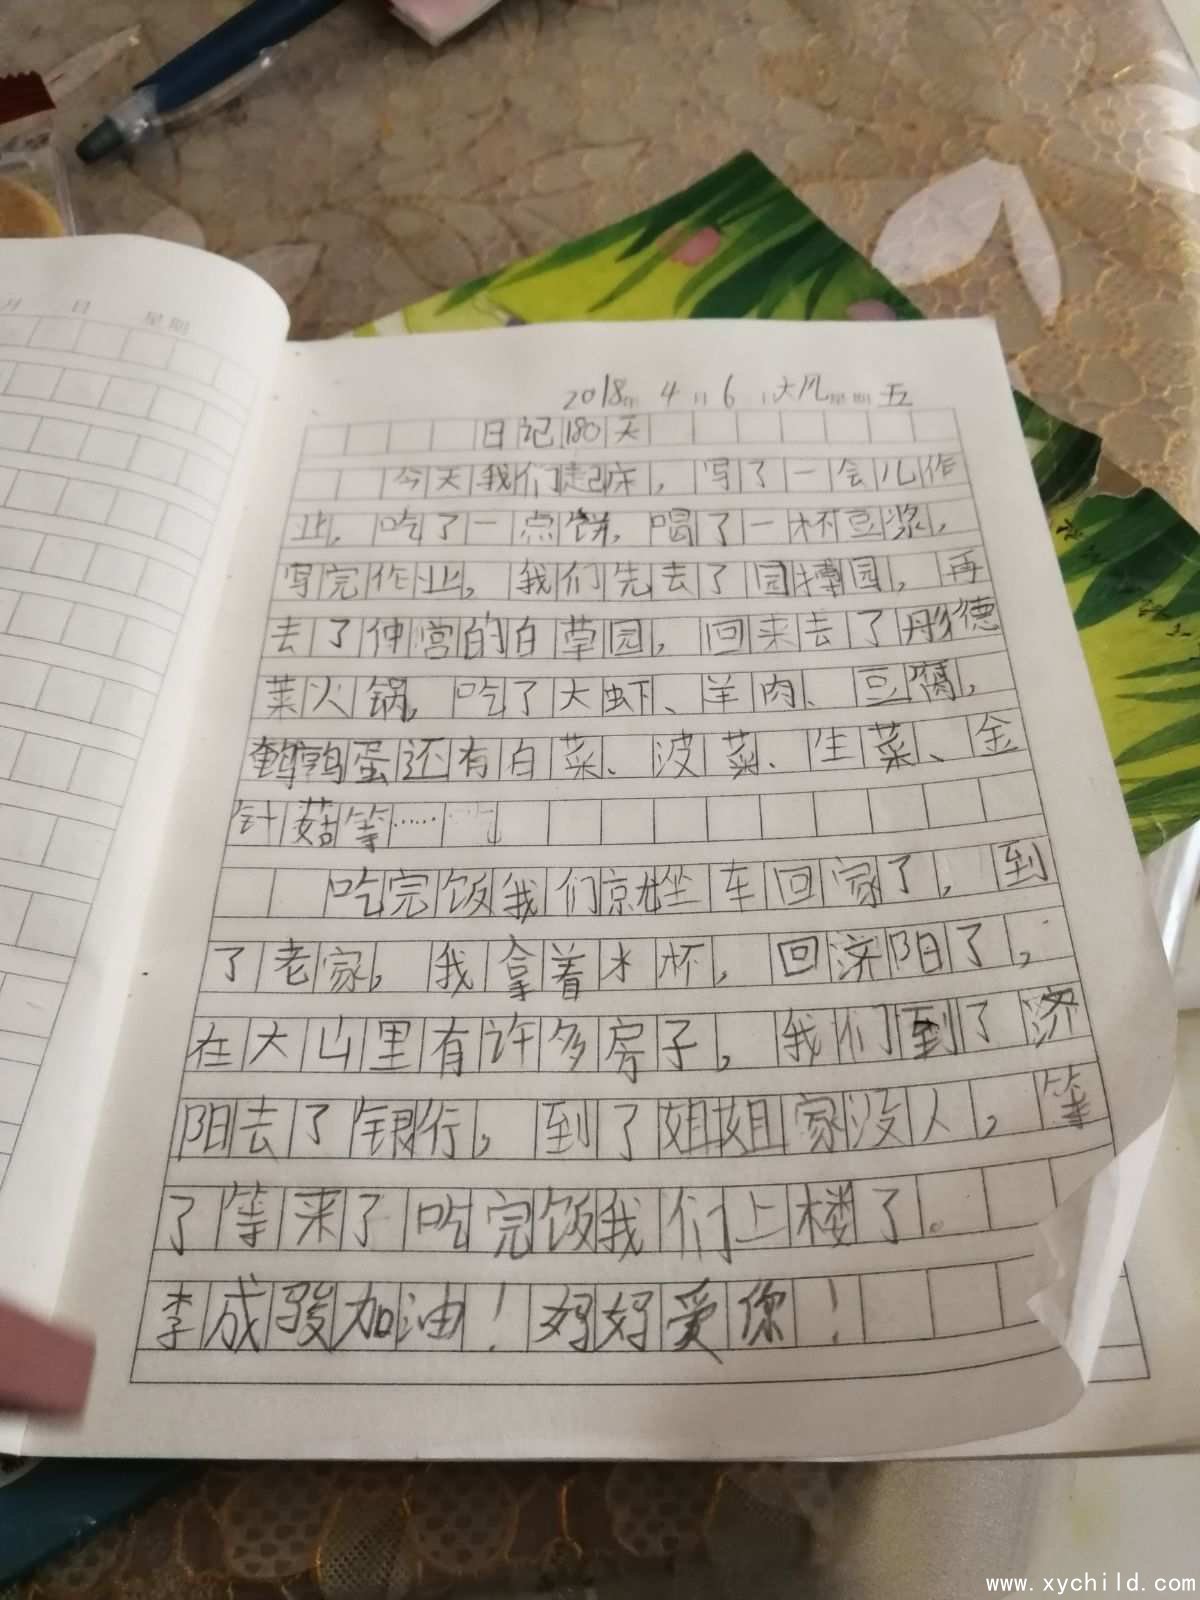 月 日 星期
2018年 4月 6日 大风 星期 五
日记180天
今天我们起床，写了一会儿作
业，吃了一点饼，喝了一杯豆浆，
写完作业，我们先去了园博园，再
去了仲宫的白草园，回来去了彤德
莱火锅，吃了大虾、羊肉、豆腐，
鹌鹑蛋还有白菜、波菜、生菜、金
针菇等……
吃完饭我们就坐车回家了，到
了老家，我拿着水杯，回济阳了，
在大山里有许多房子，我们到了济
阳去了银行，到了姐姐家没人，等
了等来了吃完饭我们上楼了。
李成骏加油！妈妈爱你！
www.xychild.com